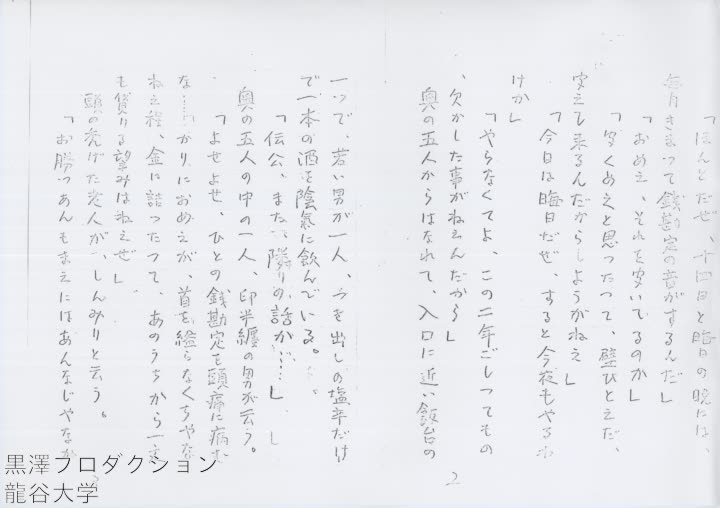 「ほんとだぜ、十四日と晦日の晩には、
毎月きまって銭勘定の音がするんだ」
「おめえ、それを安いでるのか」
「安くめえと思ったって、壁ひとえだ、
安えて来るんだからしようがねえ」
「今日は晦日だぜ、すると今夜もやるわ
けか」
「やらなくてよ、この二年ごしってもの
、欠かした事がねえんだから」
奥の五人からはなれて、入口に近い飯台の
2
一つで、若い男が一人、つき出しの塩辛だけ
で一本の酒を陰気に飲んでいる。
「伝公、また隣りの話か……」
奥の五人の中の一人、印半纏の男が云う。
「よせよせ、ひとの銭勘定を頭痛に病む
な……かりにおめえが、首を縊らなくちゃな
ねえ程、金に詰ったって、あのうちから一文
も貸りる望みはねえぜ」
頭の禿げた老人が、しんみりと云う。
「お勝つあんもまえにはあんなじゃなか
3
黒澤プロダクション
龍谷大学